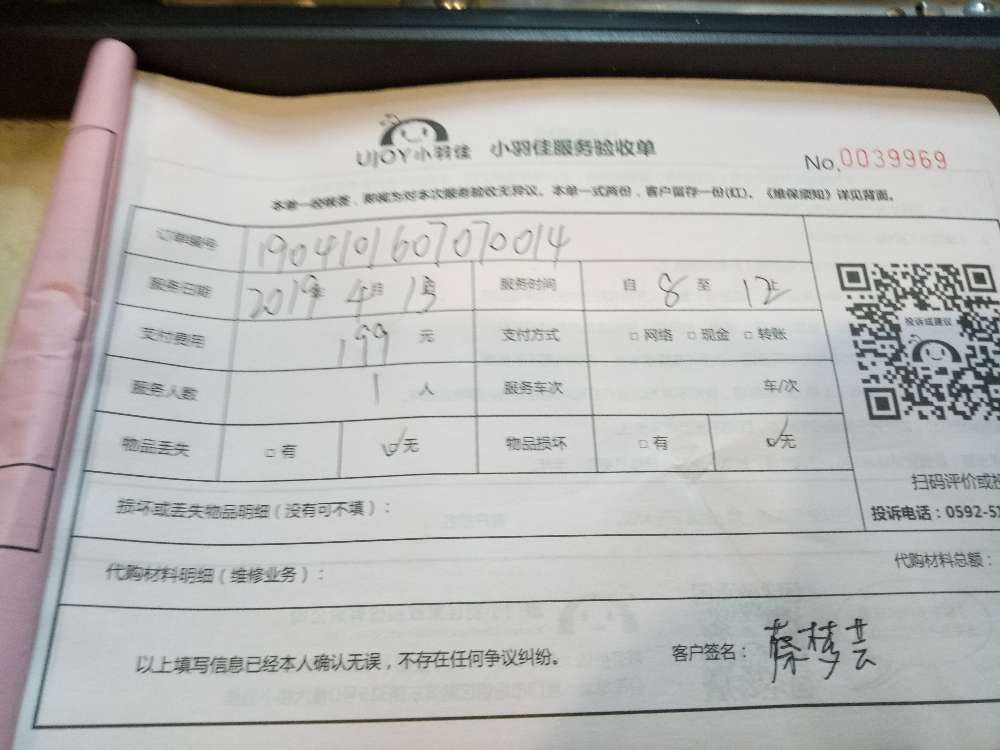 UJOY小羽佳 小羽佳服务验收单
No.0039969
本单一经签署，即视为对本次服务验收无异议。本单一式两份，客户留存一份(红)。《维保须知》详见背面。
订单编号 1904101607070014
服务日期 2019年 4月 13日 服务时间 自 8 至 12止
支付费用 199 元 支付方式 □ 网络 □ 现金 □ 转账
服务人数 1 人 服务车次 车/次
物品丢失 □ 有 ☑无 物品损坏 □ 有 ☑无
投诉或建议
扫码评价或投
投诉电话：0592-5
损坏或丢失物品明细（没有可不填）：
代购材料明细（维修业务）： 代购材料总额：
以上填写信息已经本人确认无误，不存在任何争议纠纷。 客户签名： 蔡梦芸